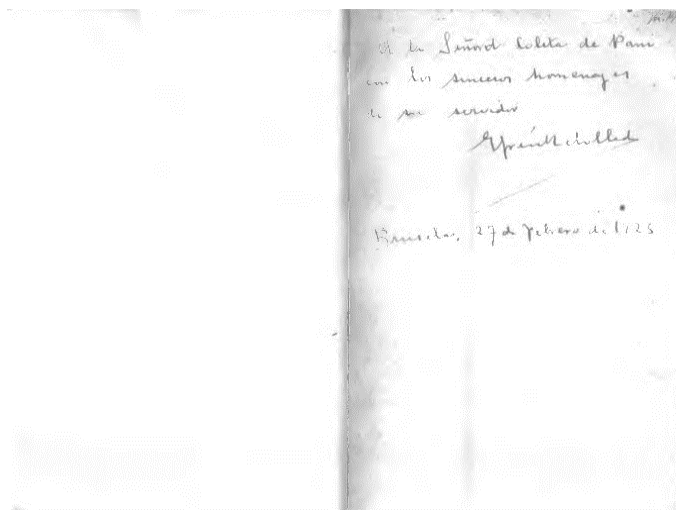 A la Señora Coleta de Pani
con los sinceros homenages
de su servidor
Bruselas, 27 de febrero de 1925